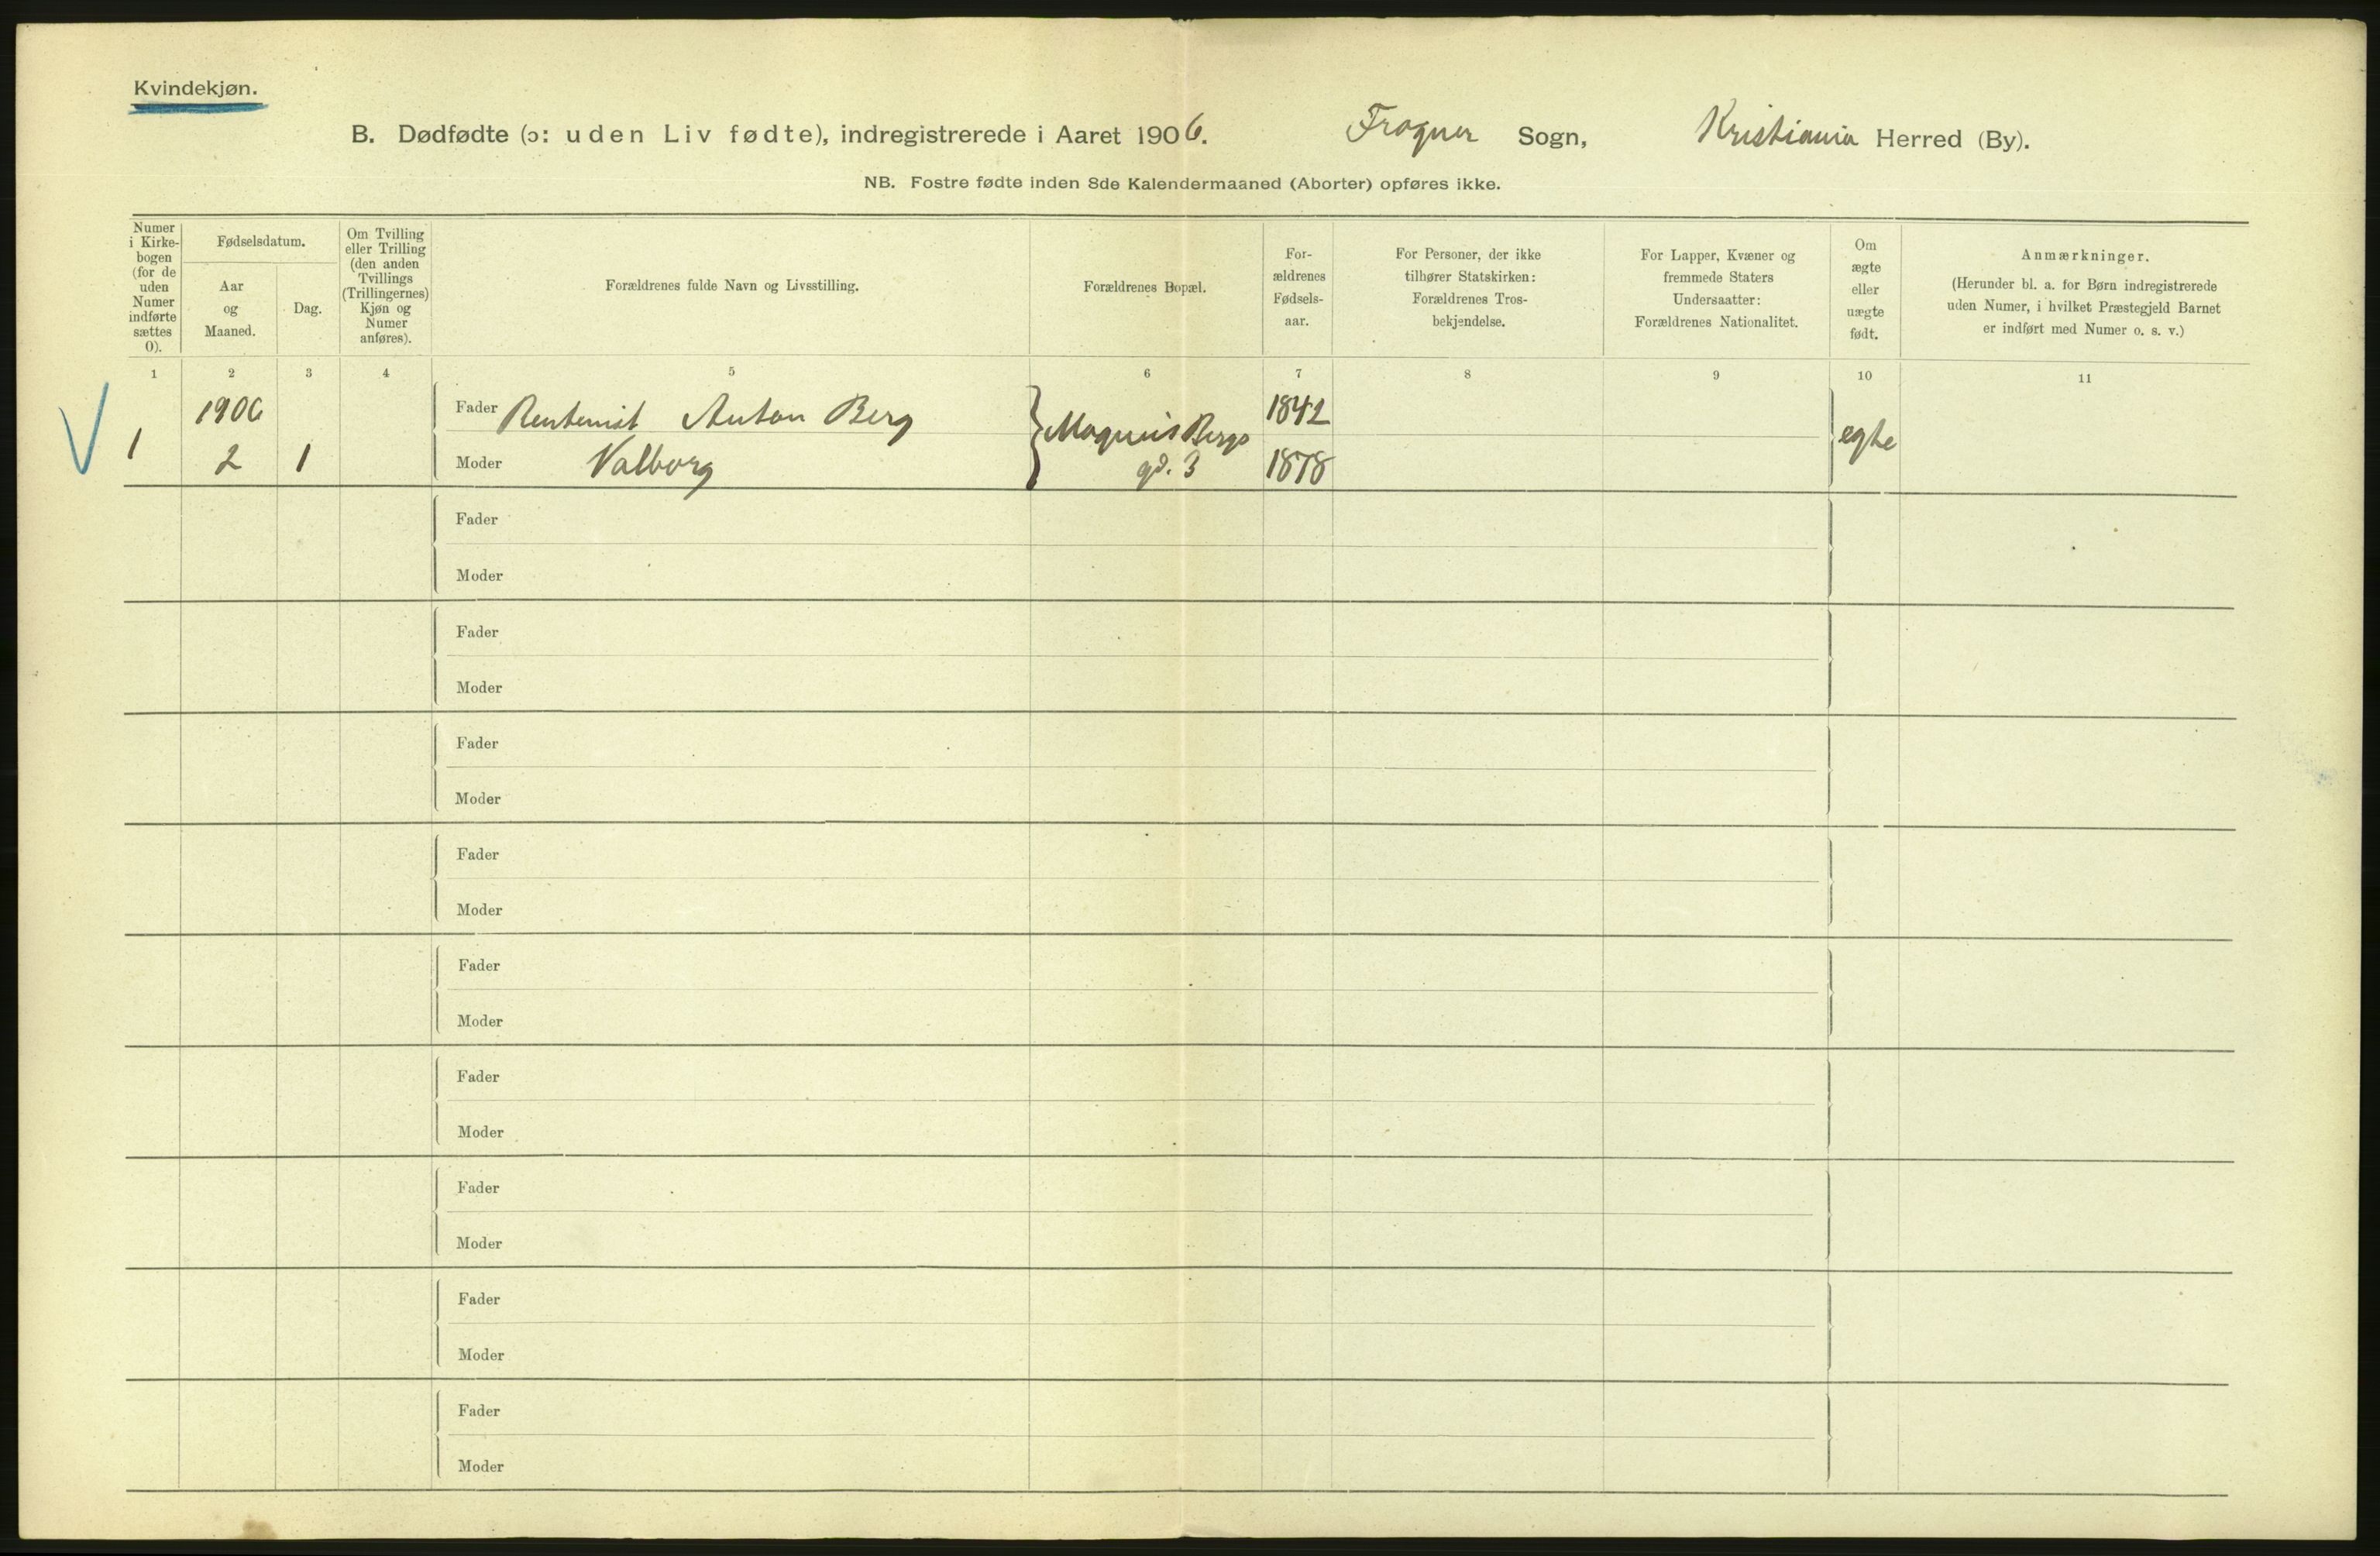 Kvindekjøn.
B. Dødfødte (ɔ: uden Liv fødte), indregistrerede i Aaret 1906. Frogner Sogn, Kristiania Herred (By).
NB. Fostre fødte inden 8de Kalendermaaned (Aborter) opføres ikke.
Numer
i Kirke-
bogen
(for de
uden
Numer
indførte
sættes
0).
Fødselsdatum.
Aar
og
Maaned.
Dag.
Om Tvilling
eller Trilling
(den anden
Tvillings
(Trillingernes)
Kjøn og
Numer
anføres).
Forældrenes fulde Navn og Livsstilling.
Forældrenes Bopæl.
For-
ældrenes
Fødsels-
aar.
For Personer, der ikke
tilhører Statskirken:
Forældrenes Tros-
bekjendelse.
For Lapper, Kvæner og
fremmede Staters
Undersaatter:
Forældrenes Nationalitet.
Om
ægte
eller
uægte
født.
Anmærkninger.
(Herunder bl. a. for Børn indregistrerede
uden Numer, i hvilket Præstegjeld Barnet
er indført med Numer o. s. v.)
1 2 3 4 5 6 7 8 9 10 11
1906 Fader Anton Berg 1842
1 2 1 Moder Valborg Magnus Bergs gd. 3 1878 egte
Fader
Moder
Fader
Moder
Fader
Moder
Fader
Moder
Fader
Moder
Fader
Moder
Fader
Moder
Fader
Moder
Fader
Moder